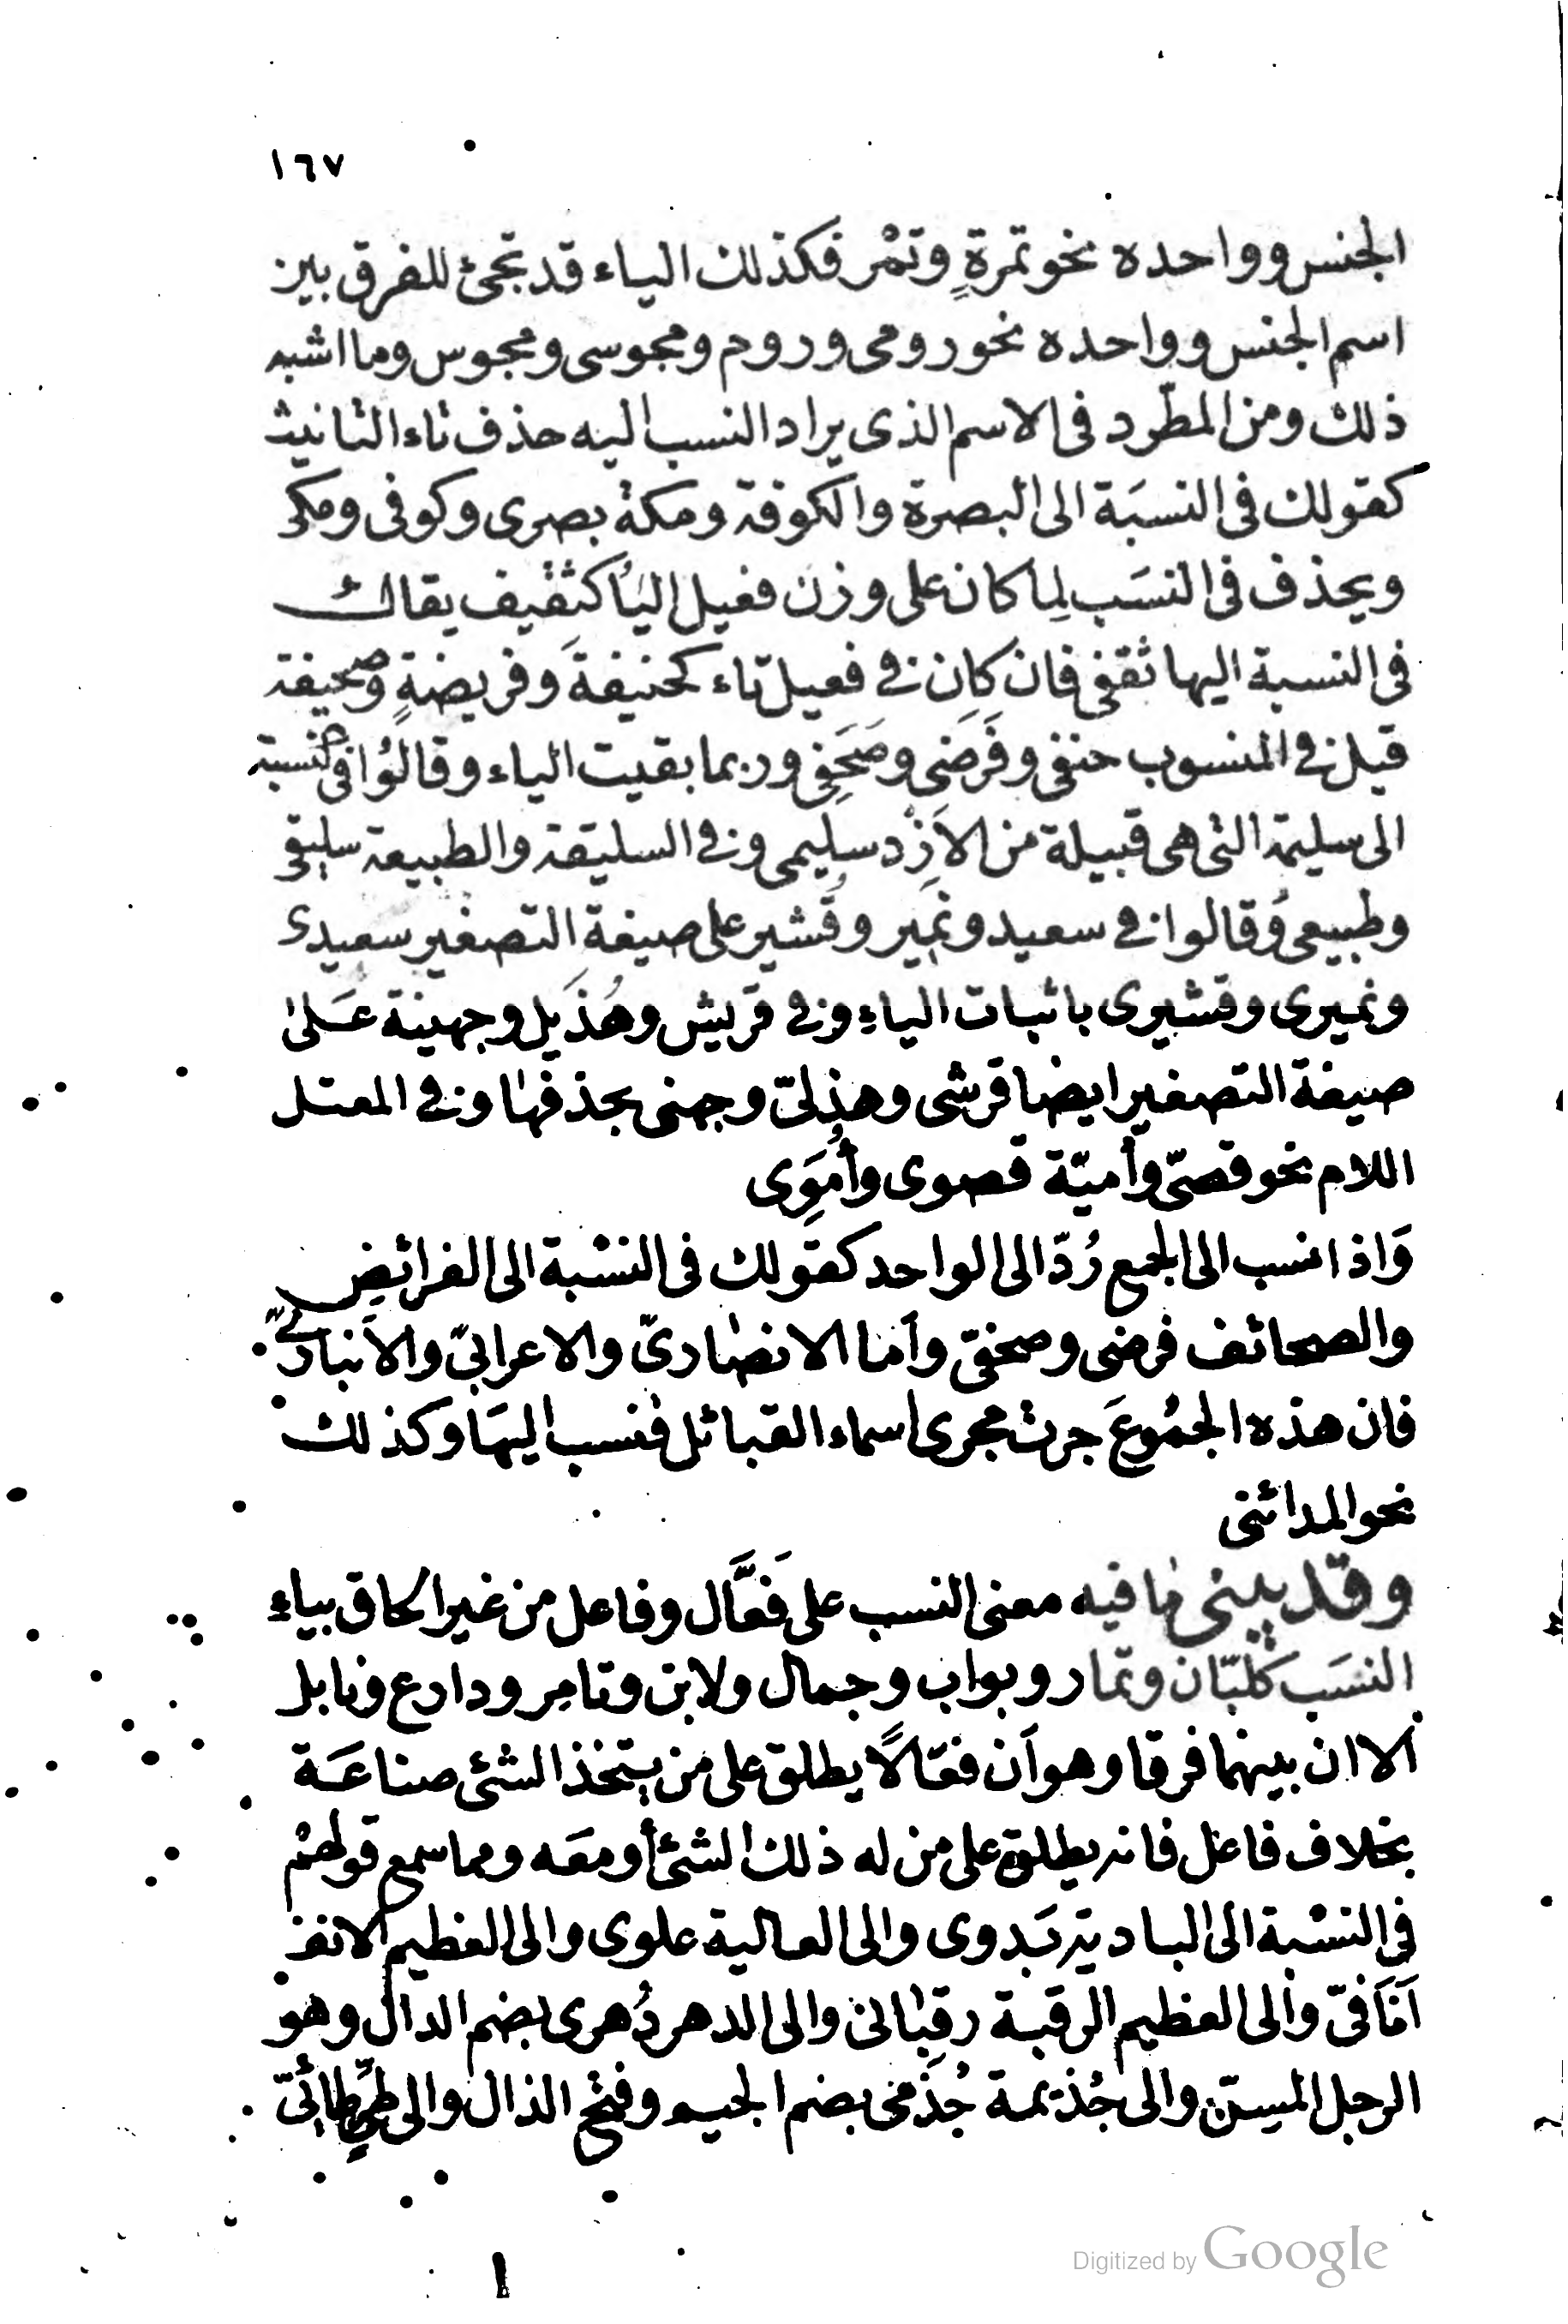 ١٦٧
الجنس وواحده نحو تمرةٍ وتمْر فكذلك الياء قد تجئ للفرق بين
اسم الجنس وواحده نحو رومى وروم ومجوسى ومجوس وما اشبه
ذلك ومن المطّرد فى الاسم الذى يراد النسب اليه حذف تاء التانيث
كقولك فى النسبَة الى البصرة والكوفة ومكة بصرى وكوفى ومكى
ويحذف فى النسَب لِما كان على وزن فعيل اليأ كثقيف يقال
فى النسبة اليها ثقفى فان كان فى فعيل تاء كحنيفة وفريضةٍ وصحيفة
قيل فى المنسوب حنفى وفَرَضى وصَحَفِى وربما بقيت الياء وقالوُا فى النسبة
الى سليمة التى هى قبيلة من الاَزْد سليمى وفى السليقة والطبيعة سليقى
وطبيعى وقالوا فى سعيد ونمير وقُشير على صيغة التصغير سعيدى
ونميرى وقشيرى باثبات الياءِ وفى قريش وهُذَيل وجهينة عَلىٰ
صيغة التصغير ايضا قرشى وهذلىّ وجهنى بحذفها وفى المعتل
اللام نحو قصىّ وأميّة قصوى وأُمَوِى
وَاذا نسب الى الجمع رُدّ الى الواحد كقولك فى النسْبة الى الفرائض
والصحائف فرضى وصحفىّ وأما الانصارىّ والاعرابىّ والاَنبارىّ
فان هذه الجمُوعَ جرت مجرى اسماء القبائل فنسب اليهَا وكذلك
نحو المدائنى
وقد يبنى ما فيه معنى النسب على فَعَّال وفاعل من غير الحاق بياءِ
النسَب كلبّان وتمار وبواب وجمال ولابن وتامر ودارع ونابل
الا ان بينهما فرقا وهو اَن فعّالًا يطلق على من يتخذ الشئ صناعَة
بخلاف فاعل فانه يطلق على من له ذلك الشئ أو معَه ومما سمع قولهمْ
فى النسْبة الى البادية بَدوى والى العالية علوى والى العظيم الانف
اَنَافىّ والى العظيم الرقبة رقبانى والى الدهر دُهرى بضم الدال وهو
الرجل المسنّ والى جُذيمة جُذَمى بضم الجيم وفتح الذال والى طيّئ طائىّ
Digitized by Google